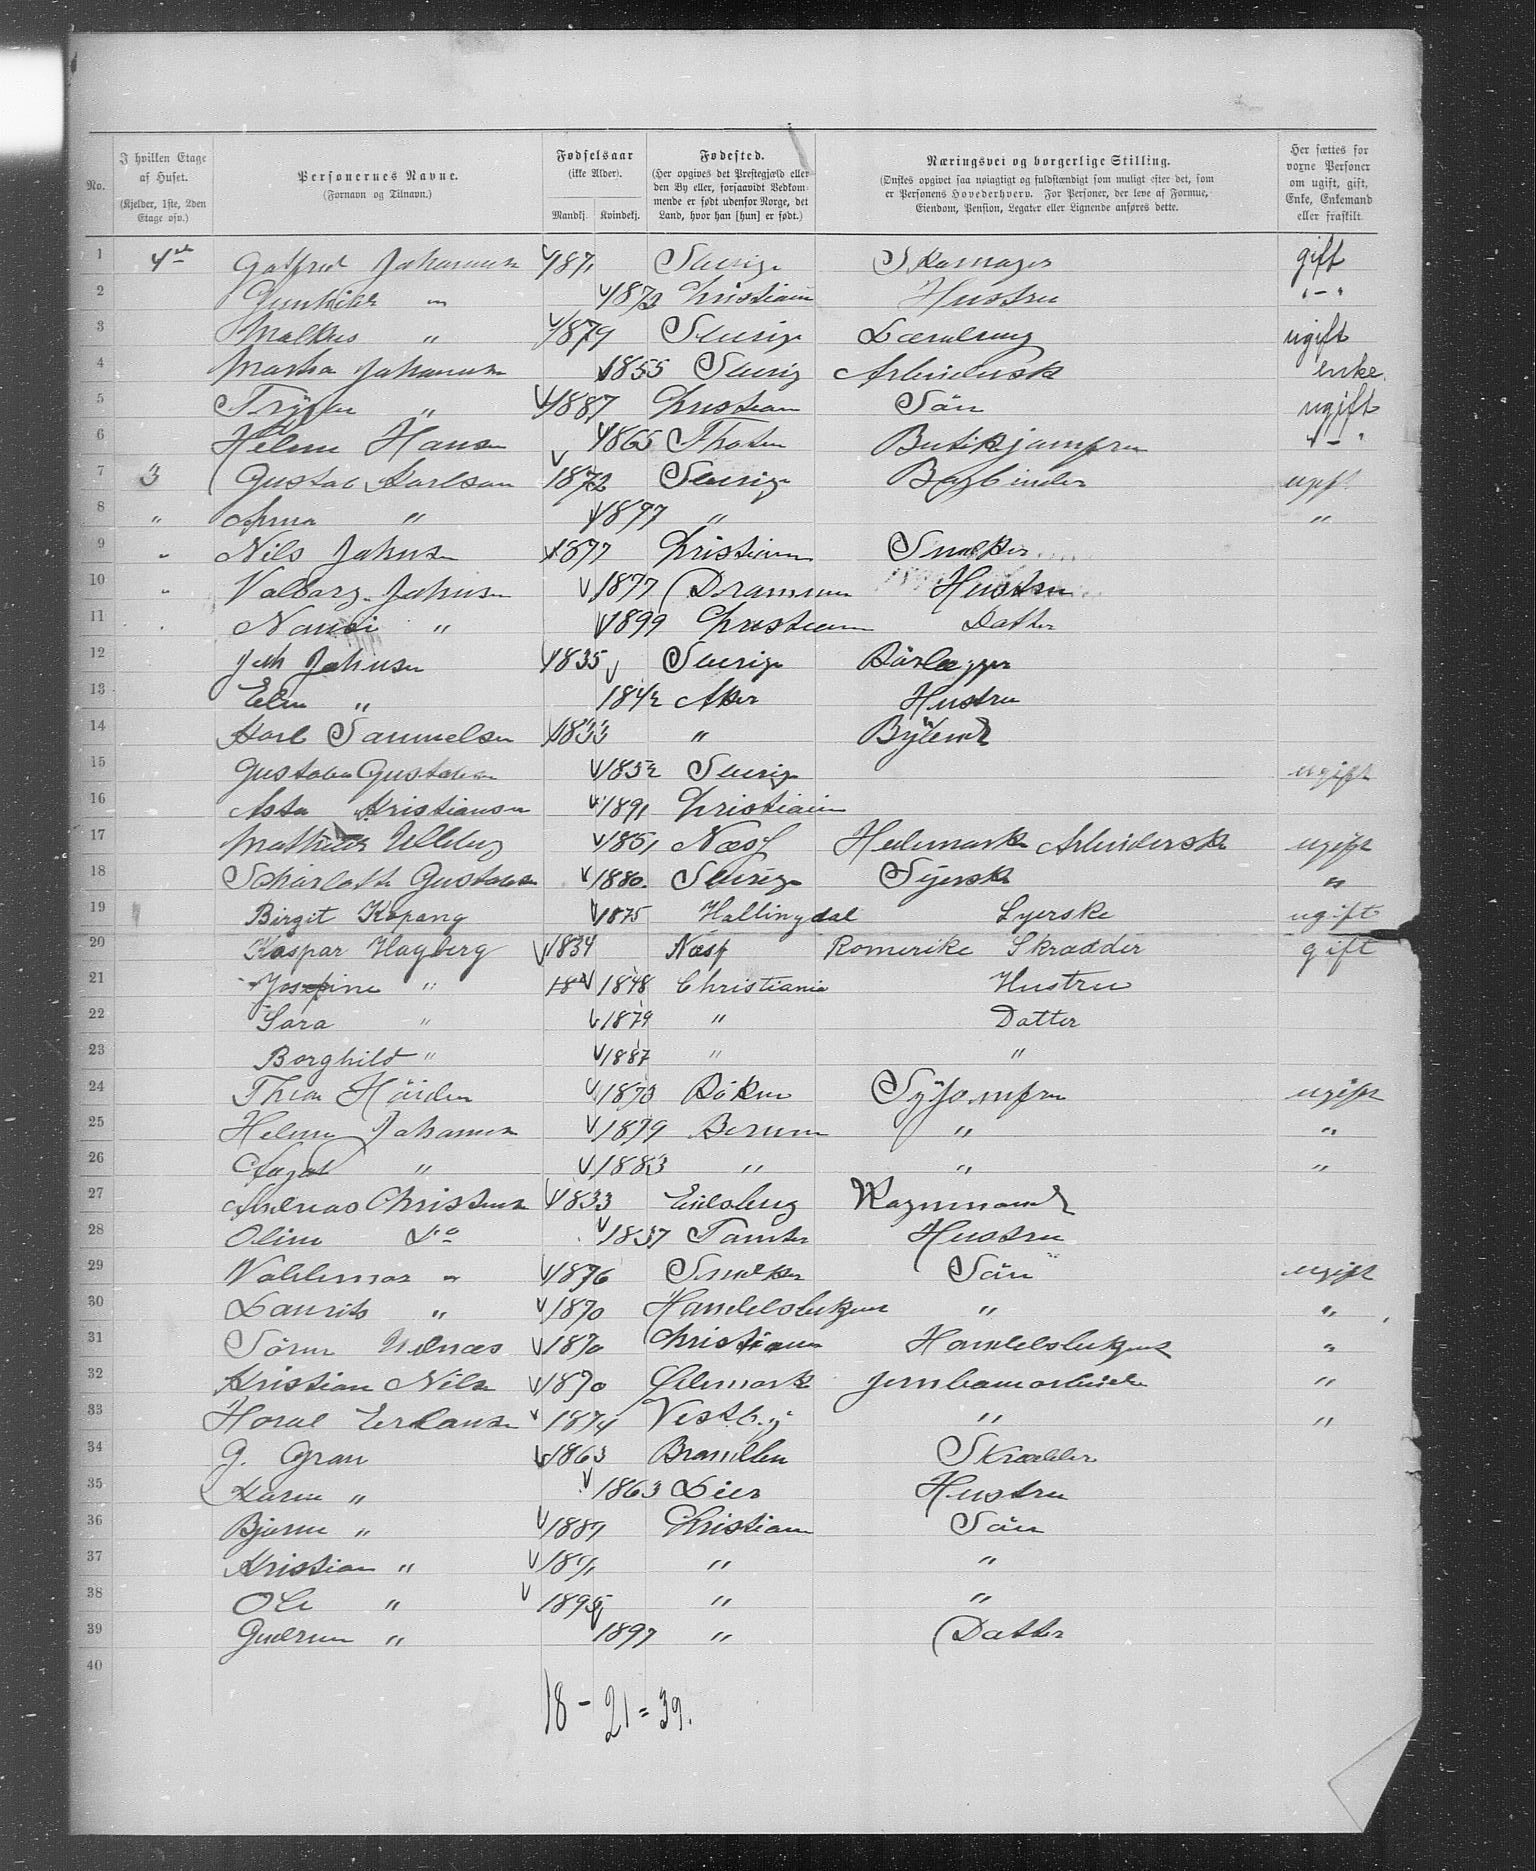 No.
I hvilken Etage af Huset. (Kjelder, 1ste, 2den Etage osv.)
Personernes Navne. (Fornavn og Tilnavn.)
Fødselsaar (ikke Alder). Mandkj. Kvindekj.
Fødested. (Her opgives det Prestegjeld eller den By eller, forsaavidt Bedkommende er født udenfor Norge, det Land, hvor han [hun] er født.)
Næringsvei og borgerlige Stilling. (Ønskes opgivet saa nøiagtigt og fuldstændigt som muligt efter det, som er Personens Hovederhverv. For Personer, der leve af Formue, Eiendom, Pension, Legater eller Lignende anføres dette.
Her sættes for voxne Personer om ugift, gift, Enke, Enkemand eller fraskilt.
1 4de Gotfred Johannsen 1871 Sverige Skomager gift
2 Gunhild " 1872 Christiania Hustru "-"
3 Malkus " 1879 Sverige ugift
4 Martha Johannsen 1855 Sverig Arbeiderske enke
5 Trygve " 1887 Christiania Sön ugift
6 Helene Hansen 1865 Thoten Butikjomfru "-"
7 3 Gustav Karlson 1872 Sverige Bogbinder ugift
8 " Anna " 1897 " "
9 " Nils Johnsen 1877 Christiania Snedker
10 " Valborg Johnsen 1877 Drammen Hustru
11 Nansi " 1899 Christiania Datter
12 Johnsen 1835 Sverige
13 " 1842 Aker Hustru
14 Karl Samuelsen 1833 " Bybud
15 Gustava Gustavsen 1852 Sverige ugift
16 Asta Kristiansen 1891 Christiania
17 Mathilde Ulleberg 1851 Næss Hedemarken Arbeiderske ugift
18 Scharlotte Gustavsen 1880 Sverige Syerske "
19 Birgit Kopang 1875 Hallingdal Syerske ugift
20 Kaspar Hagberg 1834 Næsf Romerike Skrædder gift
21 Josefine " 18 1848 Christiania Hustru
22 Sara " 1879 " Datter
23 Borghild " 1887 " "
24 Thea Höiden 1873 Röken Syjomfru ugift
25 Helene Johannsen 1879 Berum " "
26 Aagot " 1883 " " "
27 Andreas Christensen 1833 Eidsberg Vognmand
28 Oline Do 1837 Tomter Hustru
29 Valdemar " 1876 Snedker Sön ugift
30 Laurits " 1870 Handelsbetjent " "
31 Sören Udnæs 1870 Christiania Handelsbetjent "
32 Kristian Nilsen 1870 Ødemark Jernbanearbeider "
33 Haral Erlansen 1874 Vestby " "
34 G. Gran 1863 Skrædder
35 Karen " 1863 Lier Hustru
36 Bjarne " 1889 Christiania Sön
37 Kristian " 1891 " "
38 Ole " 1895 " "
39 Gudrun " 1897 " Datter
40
18 - 21 = 39.